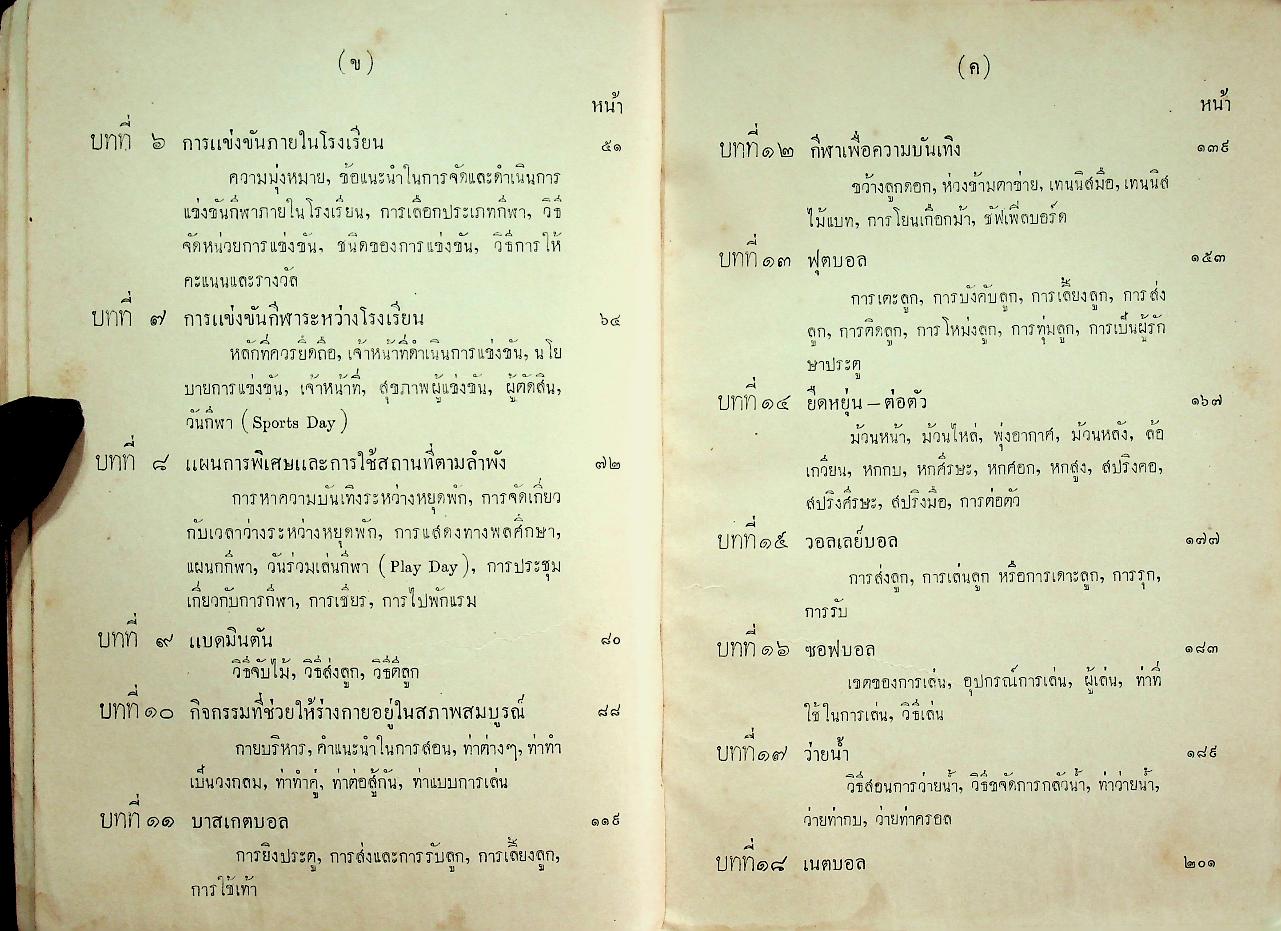 (ข)
หน้า
บทที่ ๖ การแข่งขันภายในโรงเรียน ๕๑
ความมุ่งหมาย, ข้อแนะนำในการจัดและดำเนินการ
แข่งขันกีฬาภายในโรงเรียน, การเลือกประเภทกีฬา, วิธี
จัดหน่วยการแข่งขัน, ชนิดของการแข่งขัน, วิธีการให้
คะแนนและรางวัล
บทที่ ๗ การแข่งขันกีฬาระหว่างโรงเรียน ๖๔
หลักที่ควรยึดถือ, เจ้าหน้าที่ดำเนินการแข่งขัน, นโย
บายการแข่งขัน, เจ้าหน้าที่, สุขภาพผู้แข่งขัน, ผู้ตัดสิน,
วันกีฬา (Sports Day)
บทที่ ๘ แผนการพิเศษและการใช้สถานที่ตามลำพัง ๗๒
การหาความบันเทิงระหว่างหยุดพัก, การจัดเกี่ยว
กับเวลาว่างระหว่างหยุดพัก, การแสดงทางพลศึกษา,
แผนกกีฬา, วันร่วมเล่นกีฬา (Play Day), การประชุม
เกี่ยวกับการกีฬา, การเชียร, การไปพักแรม
บทที่ ๙ แบดมินตัน ๘๐
วิธีจับไม้, วิธีส่งลูก, วิธีตีลูก
บทที่ ๑๐ กิจกรรมที่ช่วยให้ร่างกายอยู่ในสภาพสมบูรณ์ ๘๘
กายบริหาร, คำแนะนำในการสอน, ท่าต่างๆ, ท่าทำ
เป็นวงกลม, ท่าทำคู่, ท่าต่อสู้กัน, ท่าแบบการเล่น
บทที่ ๑๑ บาสเกตบอล ๑๑๙
การยิงประตู, การส่งและการรับลูก, การเลี้ยงลูก,
การใช้เท้า
(ค)
หน้า
บทที่ ๑๒ กีฬาเพื่อความบันเทิง ๑๓๙
ขว้างลูกดอก, ห่วงข้ามตาข่าย, เทนนิสมือ, เทนนิส
ไม้แบท, การโยนเกือกม้า, ชัฟเฟิ่ลบอร์ด
บทที่ ๑๓ ฟุตบอล ๑๕๓
การเตะลูก, การบังคับลูก, การเลี้ยงลูก, การส่ง
ลูก, การดีดลูก, การโหม่งลูก, การทุ่มลูก, การเป็นผู้รัก
ษาประตู
บทที่ ๑๔ ยืดหยุ่น – ต่อตัว ๑๖๗
ม้วนหน้า, ม้วนไหล่, พุ่งอากาศ, ม้วนหลัง, ล้อ
เกวียน, หกกบ, หกศีรษะ, หกศอก, หกสูง, สปริงคอ,
สปริงศีรษะ, สปริงมือ, การต่อตัว
บทที่ ๑๕ วอลเลย์บอล ๑๗๗
การส่งลูก, การเล่นลูก หรือการเดาะลูก, การรุก,
การรับ
บทที่ ๑๖ ซอฟบอล ๑๘๓
เขตของการเล่น, อุปกรณ์การเล่น, ผู้เล่น, ท่าที่
ใช้ในการเล่น, วิธีเล่น
บทที่ ๑๗ ว่ายน้ำ ๑๘๙
วิธีสอนการว่ายน้ำ, วิธีขจัดการกลัวน้ำ, ท่าว่ายน้ำ,
ว่ายท่ากบ, ว่ายท่าครอล
บทที่ ๑๘ เนตบอล ๒๐๑